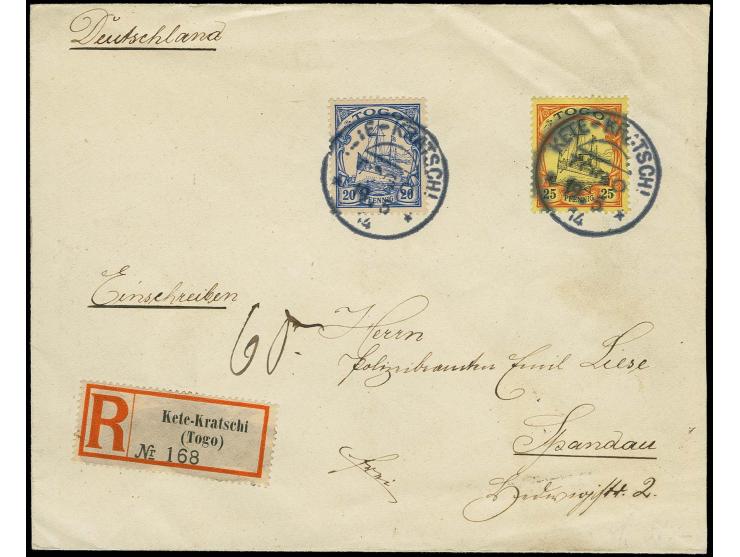 Deutschland
TOGO
20 20
PFENNIG
KETE-KRATSCHI
14
TOGO
25 25
PFENNIG
KETE-KRATSCHI
14
Einschreiben
Herrn
Polizeibeamten Emil Liese
Spandau
Hedwigstr. 2.
frei
R
Kete-Kratschi
(Togo)
№ 168